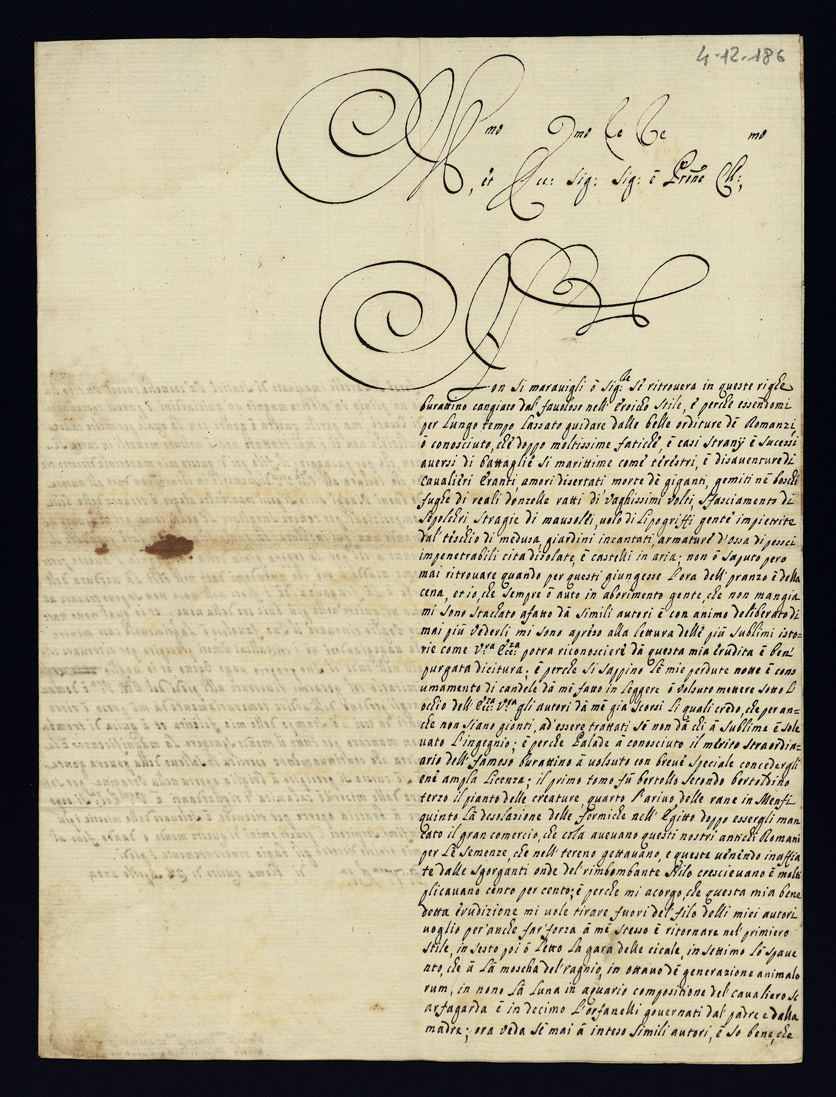 4-12-186
mo Dmo Le Be mo
, et Ecc: Sig: Sig: è Prōne
Non Si maravigli ò Sig:le Sè ritrovera in queste righe
burattino cangiato dal favoloso nell'Eroicho Stile, è perche essendomi
per Lungo tempo Lassato guidare dalle belle orditure dè Romanzi,
ò conosciuto, chè doppo moltissime fatiche, è casi Stranÿ è Sucessi
aversi di battaglie Si marittime come tèrèstri, è disaventure di
Cavalièri Èranti amori disertati morte dè giganti, gemiti nè boschi
fughe di reali donzelle ratti di vaghissimi volti, Sfasciamento di
Sepolchri, Stragie di mausolèi, volo di Lipogriffi gente impietrite
dal tèschio di mèdusa, giardini incantati, armature d'ossa di pesci
impenetrabili cita disolate, è castelli in aria; non ò Saputo pero
mai ritrovare quando per questi giungesse L'ora dell'pranzo è della
cena, et io, che Sempre ò auto in aborimento gente, che non mangia
mi Sono Stachato afatto dà Simili autori è con animo deliberato di
mai più vederli mi Sono aprèso alla lettura delle più Sublimi isto=
rie come V:ra Ecc:za potra riconosciere dà questa mia èrudita è ben
purgata dicitura; è perche Si Sappino Lè mie perdute notte è cons
umamento di candele dà mè fatto in Leggere ò voluto mettere Sotto L
ochio dell'Ecc:za V:ra gli autori dà mè già Scorsi Li quali crèdo, che per an=
che non Siano gionti, ad essere trattati Sè non dà chi à Sublime è Sole
vato L'ingegnio; è perche Palade à conosciuto il mèrito Straordin=
ario dell'famoso burattino à voluto con brevè Speciale concedergli
enè ampla Licenza; il primo tomo fù bertollo Secondo bertoldino
terzo il pianto delle creature, quarto L'arivo delle rane in Menfi
quinto Là disolazione delle formiche nell'Egitto doppo essergli man
cato il gran comercio, che cola avevano questi nostri antichi Romani
per Lè Semenze, che nell'tereno gettavano, e queste vènèndo inaffia
te dalle Sgorganti onde del'rimbombante Nilo crescievano è molti
plicavano cento per cento; è perche mi acorgo, che questa mia bene
dotta èrudizione mi vole tirare fuori del'filo delli miei autori
voglio per'anche far'forza à mè Stesso è ritornare nel'primiero
Stile, in Sesto poi ò Letto La gara delle cicale, in Settimo Lò Spave
nto, che à Là moscha del'ragnio, in ottavo dè generazione animalo
rum, in nono Là Luna in aquario compositione del'cavaliero Sc
artagarda è in decimo L'orfanelli governati dal'padre e dalla
madre; ora veda Sè mai à inteso Simili autori, è So bene, che